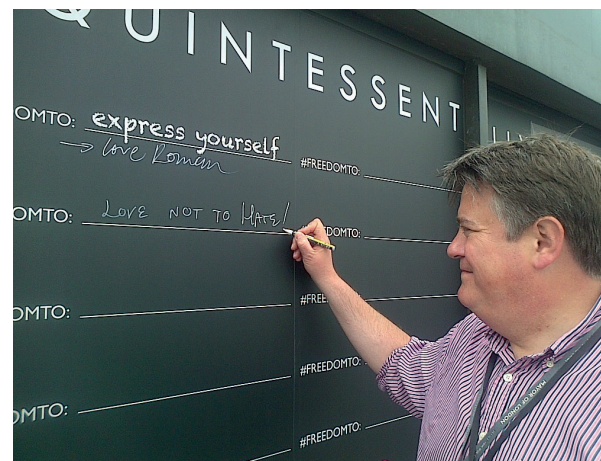 QUINTESSENT
OMTO: express yourself
→ Love Roman
#FREEDOMTO:
OMTO: LOVE NOT TO HATE!
EDOMTO:
OMTO:
#FREE
#FREEDOMTO:
OMTO:
#FREEDOMTO:
MAYOR OF LONDON